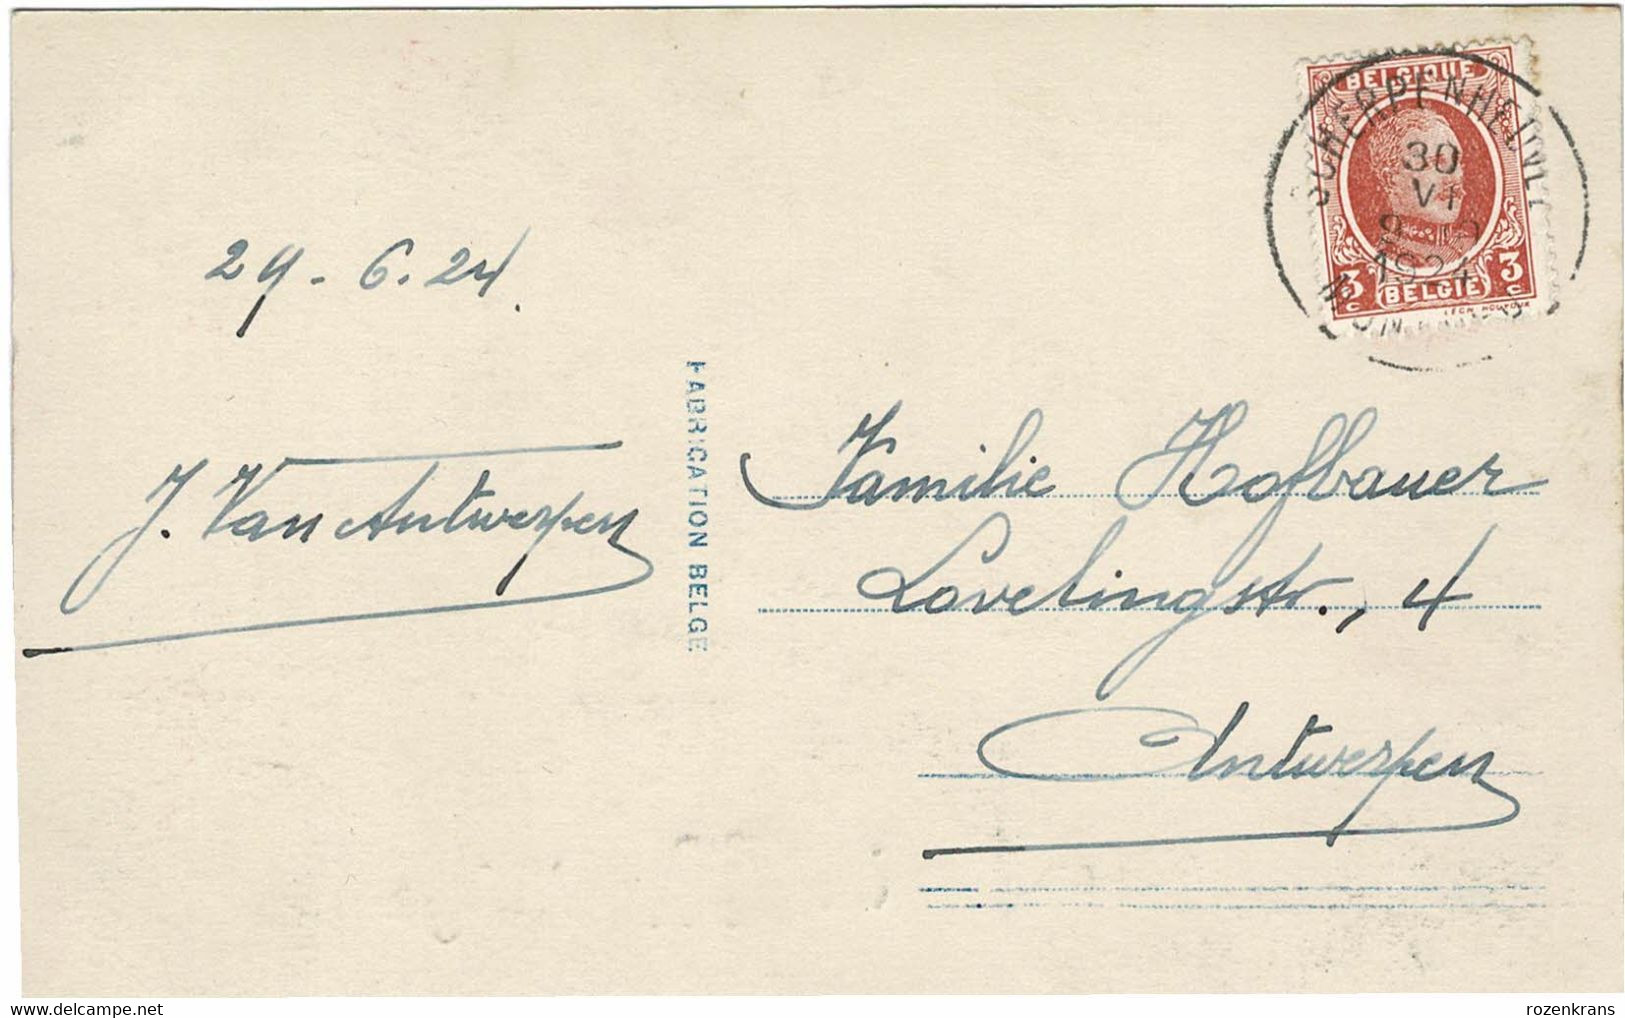 BELGIQUE
SCHERPENHEUVEL
30
VI
1924
3 BELGIE 3
c c
MONTAIGU
29-6.24.
J. Van Antwerpen
FABRICATION BELGE
Familie Hofbauer
Lovelingstr., 4
Antwerpen
www.delcampe.net
rozenkrans